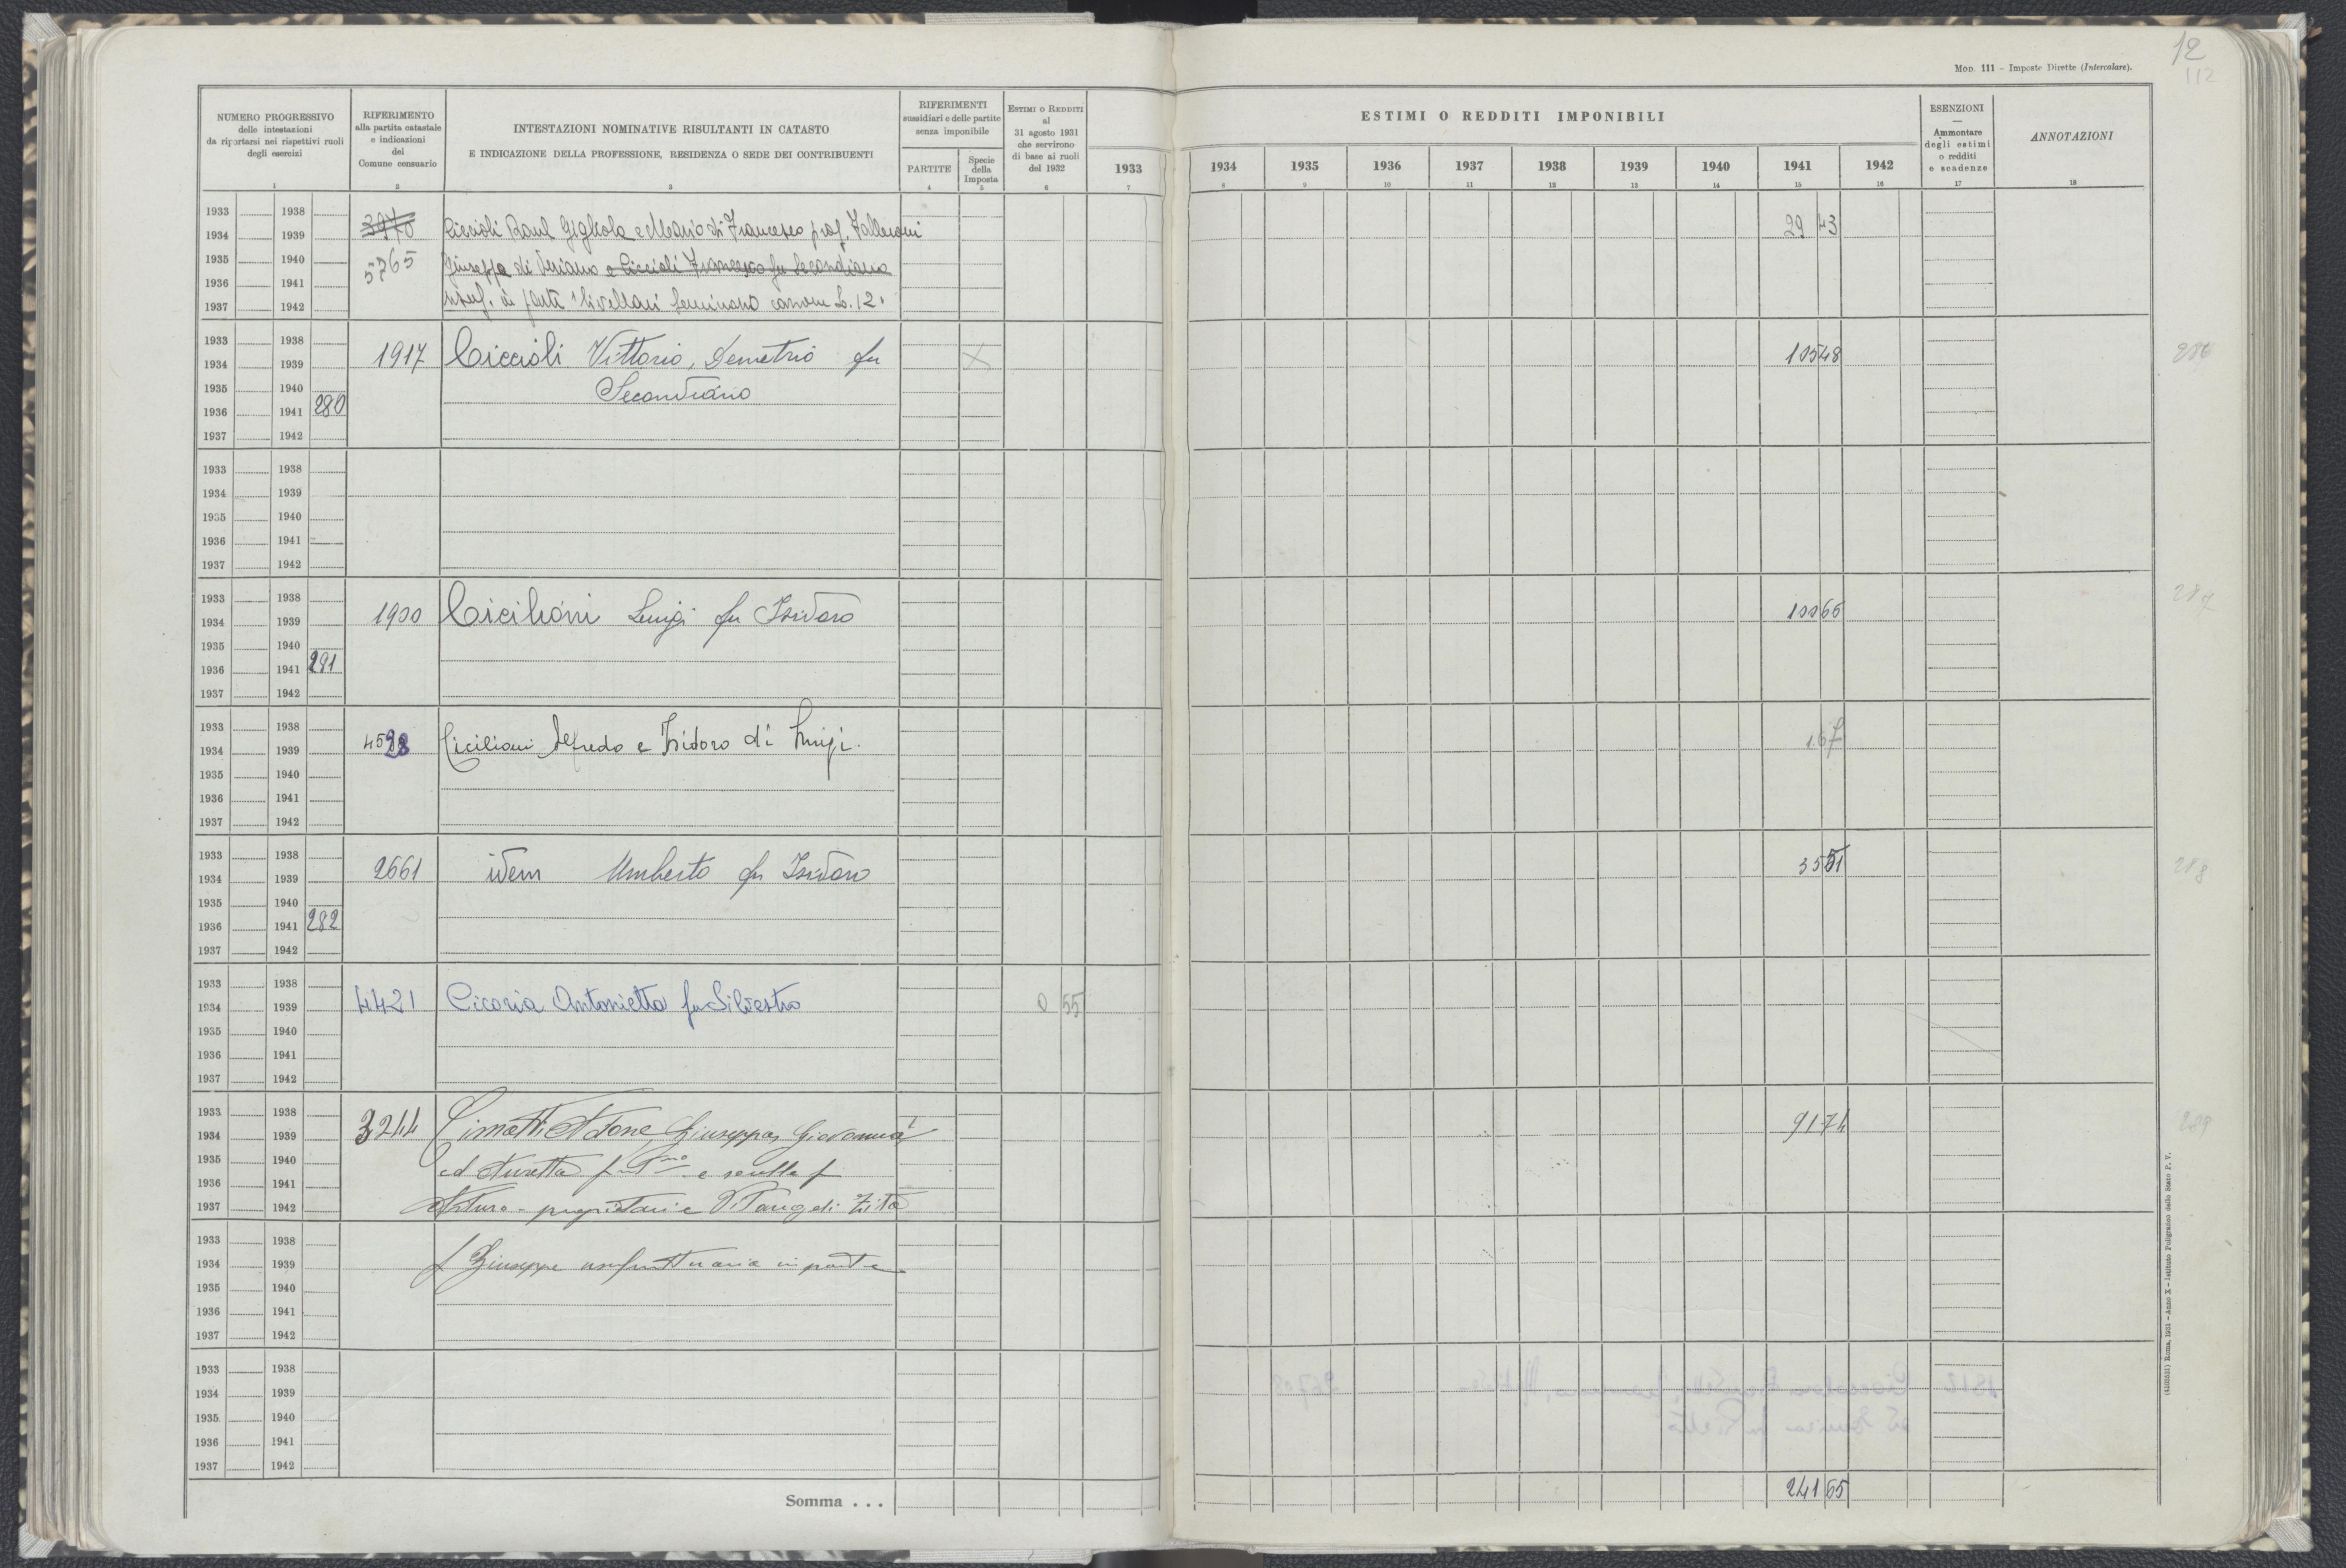 12
112
Mod. 111 – Imposte Dirette (Intercalare).
NUMERO PROGRESSIVO
delle intestazioni
da riportarsi nei rispettivi ruoli
degli esercizi
1
RIFERIMENTO
alla partita catastale
e indicazioni
del
Comune censuario
2
INTESTAZIONI NOMINATIVE RISULTANTI IN CATASTO
E INDICAZIONE DELLA PROFESSIONE, RESIDENZA O SEDE DEI CONTRIBUENTI
3
RIFERIMENTI
sussidiari e delle partite
senza imponibile
PARTITE
4
Specie
della
Imposta
5
ESTIMI O REDDITI
al
31 agosto 1931
che servirono
di base ai ruoli
del 1932
6
1933
7
ESTIMI O REDDITI IMPONIBILI
1934 1935 1936 1937 1938 1939 1940 1941 1942
8 9 10 11 12 13 14 15 16
ESENZIONI
—
Ammontare
degli estimi
o redditi
e scadenze
17
ANNOTAZIONI
18
1933 1938 3970 Ciccioli Raul Gigliola e Mario di Francesco prop. Falleroni 29 43
1934 1939
1935 1940 5765 Giuseppa di Veriano e Ciccioli Francesco fu Secondiano
1936 1941
1937 1942 usuf. in parte livellari Seminario canone L. 12
1933 1938
1934 1939 1917 Ciccioli Vittorio, Demetrio fu X 105 48
1935 1940 Secondiano
1936 1941 280
1937 1942
1933 1938
1934 1939
1935 1940
1936 1941
1937 1942
1933 1938 287
1934 1939 1900 Cicilioni Luigi fu Isidoro 100 66
1935 1940
1936 1941 281
1937 1942
1933 1938
1934 1939 4598 Cicilioni Alfredo e Isidoro di Luigi. 1.67
1935 1940
1936 1941
1937 1942
1933 1938
1934 1939 2661 idem Umberto fu Isidoro 35 51 288
1935 1940
1936 1941 282
1937 1942
1933 1938
1934 1939 4421 Cicoria Antonietta fu Silvestro 0 55
1935 1940
1936 1941
1937 1942
1933 1938
1934 1939 3244 Cimatti Adone, Giuseppa, Giovanna 91 74 289
1935 1940
1936 1941
1937 1942 Arturo - proprietari e Vitangeli Zita
1933 1938
1934 1939 f Giuseppe usufruttuaria in parte
1935 1940
1936 1941
1937 1942
1933 1938
1934 1939
1935 1940
1936 1941
1937 1942
Somma . . . 241 65
(4103531) Roma, 1931 – Anno X – Istituto Poligrafico dello Stato P. V.